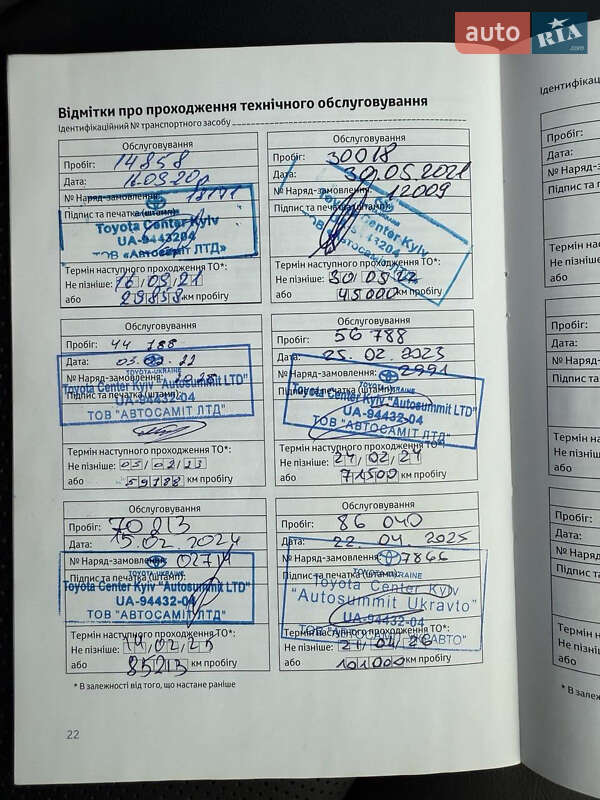 auto RIA .com
Відмітки про проходження технічного обслуговування
Ідентифікаційний № транспортного засобу
Обслуговування
Пробіг: 14858
Дата: 16.09.20
№ Наряд-замовлення: 12171
Підпис та печатка (штамп):
Toyota Center Kyiv
UA-9443204
ТОВ «Автосаміт ЛТД»
Термін наступного проходження ТО*:
Не пізніше: 16/09/21
або 29858 км пробігу
Обслуговування
Пробіг: 30018
Дата: 30.05.2021
№ Наряд-замовлення: 12009
Підпис та печатка (штамп):
Toyota Center Kyiv
ТОВ «Автосаміт ЛТД»
Термін наступного проходження ТО*:
Не пізніше: 30 05 22
або 45000 км пробігу
Обслуговування
Пробіг: 44 788
Дата: 05.02.22
№ Наряд-замовлення:
Підпис та печатка (штамп):
TOYOTA-UKRAINE
Toyota Center Kyiv "Autosummit LTD"
UA-94432-04
ТОВ "АВТОСАМІТ ЛТД"
Термін наступного проходження ТО*:
Не пізніше: 05/02/23
або 59788 км пробігу
Обслуговування
Пробіг: 56 788
Дата: 25.02.2023
№ Наряд-замовлення: 2991
Підпис та печатка (штамп):
TOYOTA-UKRAINE
Toyota Center Kyiv "Autosummit LTD"
UA-94432-04
ТОВ "АВТОСАМІТ ЛТД"
Термін наступного проходження ТО*:
Не пізніше: 24/02/24
або 71500 км пробігу
Обслуговування
Пробіг: 70213
Дата: 15.02.2024
№ Наряд-замовлення: 02714
Підпис та печатка (штамп):
TOYOTA-UKRAINE
Toyota Center Kyiv "Autosummit LTD"
UA-94432-04
ТОВ "АВТОСАМІТ ЛТД"
Термін наступного проходження ТО*:
Не пізніше: 14/02/25
або 85213 км пробігу
Обслуговування
Пробіг: 86 040
Дата: 22.04.2025
№ Наряд-замовлення: 7866
Підпис та печатка (штамп):
TOYOTA-UKRAINE
Toyota Center Kyiv
"Autosummit Ukravto"
UA-94432-04
Термін наступного проходження ТО*:
Не пізніше: 21/04/26
або 101000 км пробігу
* В залежності від того, що настане раніше
22
Ідентифікац
Пробіг:
Дата:
№ Наряд-за
Підпис та п
Термін нас
Не пізніше
або
Пробіг:
Дата:
№ Наряд
Підпис та
Термін н
Не пізні
або
Пробіг:
Дата:
№ Наря
Підпис
Термін
Не піз
або
* В зале